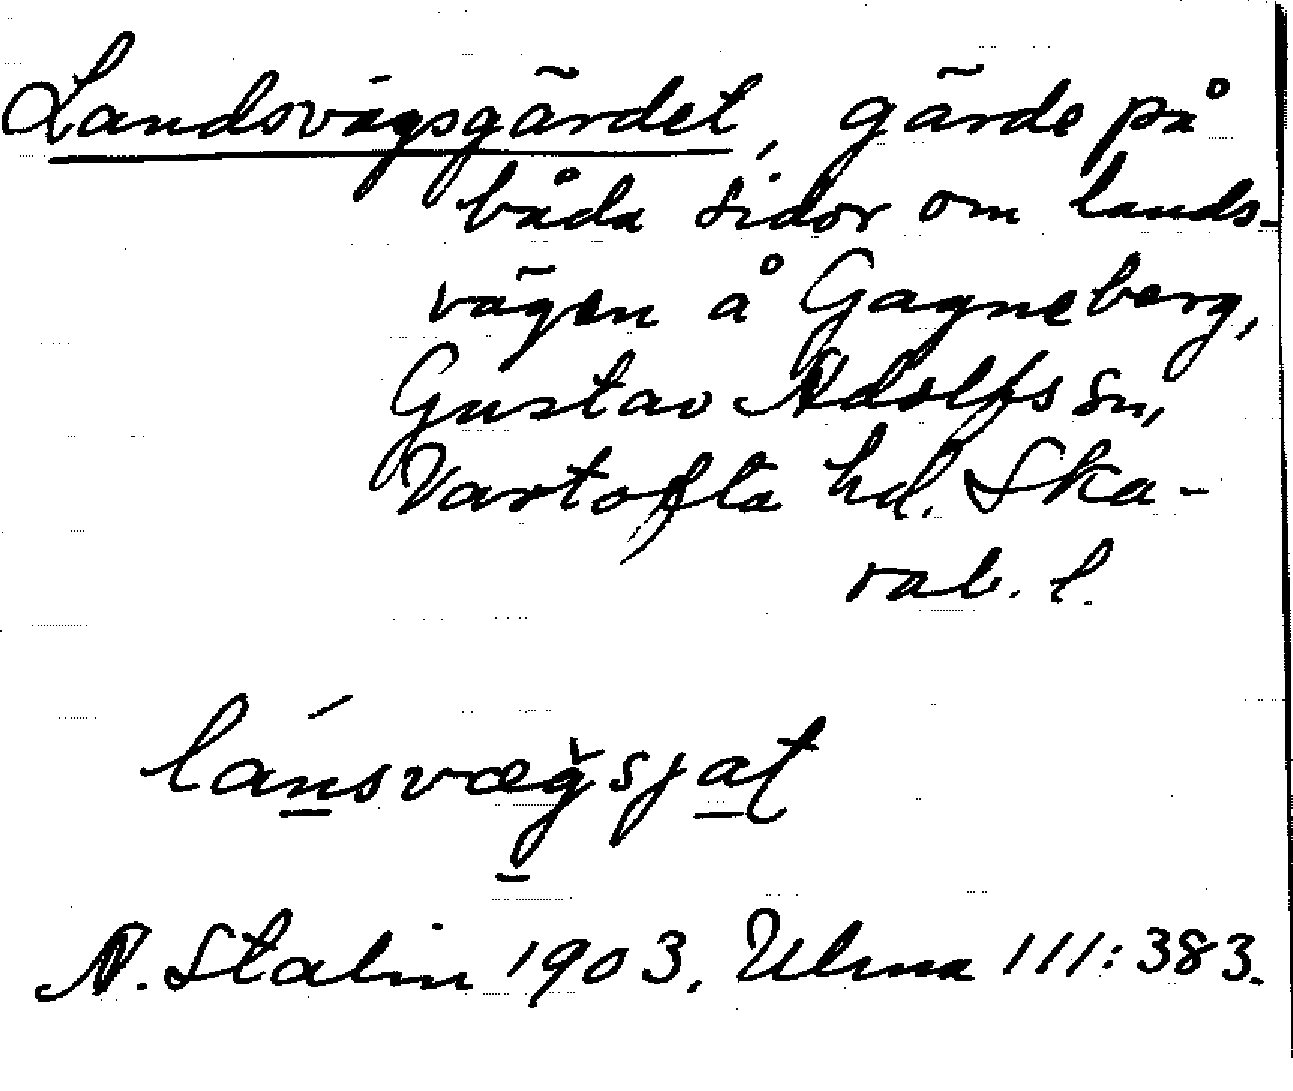 Landsvägsgärdet, gärde på
båda sidor om lands-
vägen å Gagneberg,
Gustav Adolfs sn,
Vartofta hd. Ska-
rab. l.
lánsvægsjat
A. Stalin 1903, Ulma 111:383.